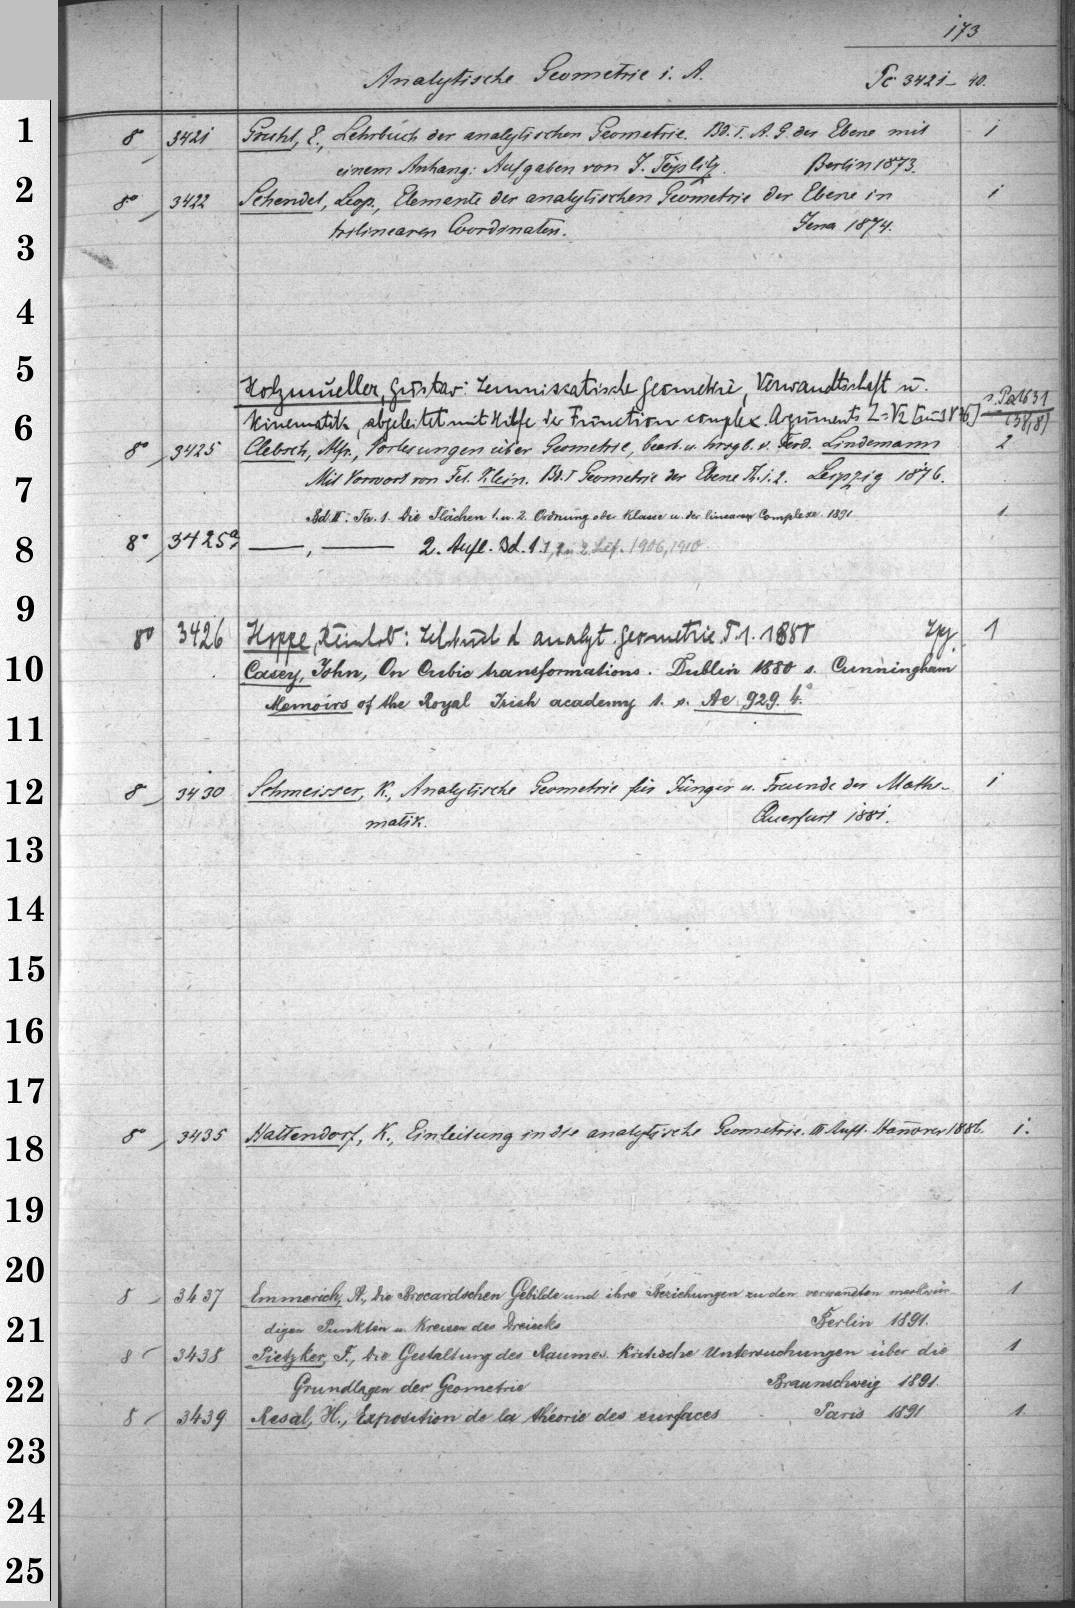 173
Analytische Geometrie i. A. Pc 3421–40.
1 8 3421 Gruhl, E., Lehrbuch der analytischen Geometrie. Bd. I. A. G. der Ebene mit 1
einem Anhang: Aufgaben von J. Töplitz. Berlin 1873.
2 8° 3422 Schendel, Leop., Elemente der analytischen Geometrie der Ebene in 1
trilinearen Coordinaten. Jena 1874.
3
4
5
Holzmueller, Gustav: Lemniskatische Geometrie, Verwandtschaft u.
6 Kinematik, abgeleitet mit Hilfe der Function complex. Arguments Z=√z
8° 3425 Clebsch, Alfr., Vorlesungen über Geometrie, bearb. u. hrsgb. v. Ferd. Lindemann 2
7 Mit Vorwort von Fel. Klein. Bd. I Geometrie der Ebene Th. 1. 2. Leipzig 1876.
Bd. II: Th. 1. Die Flächen 1. u. 2. Ordnung oder Klasse u. der lineare Complexe. 1891 1
8 8° 3425a, —, — 2. Aufl. Bd. 1 1, 1 u 2 Lief. 1906, 1910.
9
8° 3426 Hoppe, Reinhold: Lehrbuch d. analyt. Geometrie T. 1. 1880 Lpz. 1
10 Casey, John, On Cubic transformations. Dublin 1880 s. Cunningham
Memoirs of the Royal Irish academy 1. s. Ae 929. 4°
11
12 8 3430 Schmeisser, K., Analytische Geometrie für Jünger u. Freunde der Mathe- 1
matik. Querfurt 1881.
13
14
15
16
17
18 8° 3435 Hattendorf, K., Einleitung in die analytische Geometrie. III Aufl. Hannover 1886. 1.
19
20
8 3437 Emmerich, A., Die Brocardschen Gebilde und ihre Beziehungen zu den verwandten merkwür- 1
21 digen Punkten u. Kreisen des Dreiecks Berlin 1891.
8 3438 Pietzker, F., Die Gestaltung des Raumes. Kritische Untersuchungen über die 1
22 Grundlagen der Geometrie Braunschweig 1891.
8 3439 Resal, H., Exposition de la théorie des surfaces Paris 1891 1
23
24
25